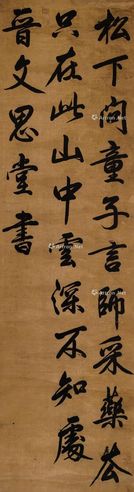 松下问童子言師采藥去
只在此山中雲深不知處
晉文思堂書